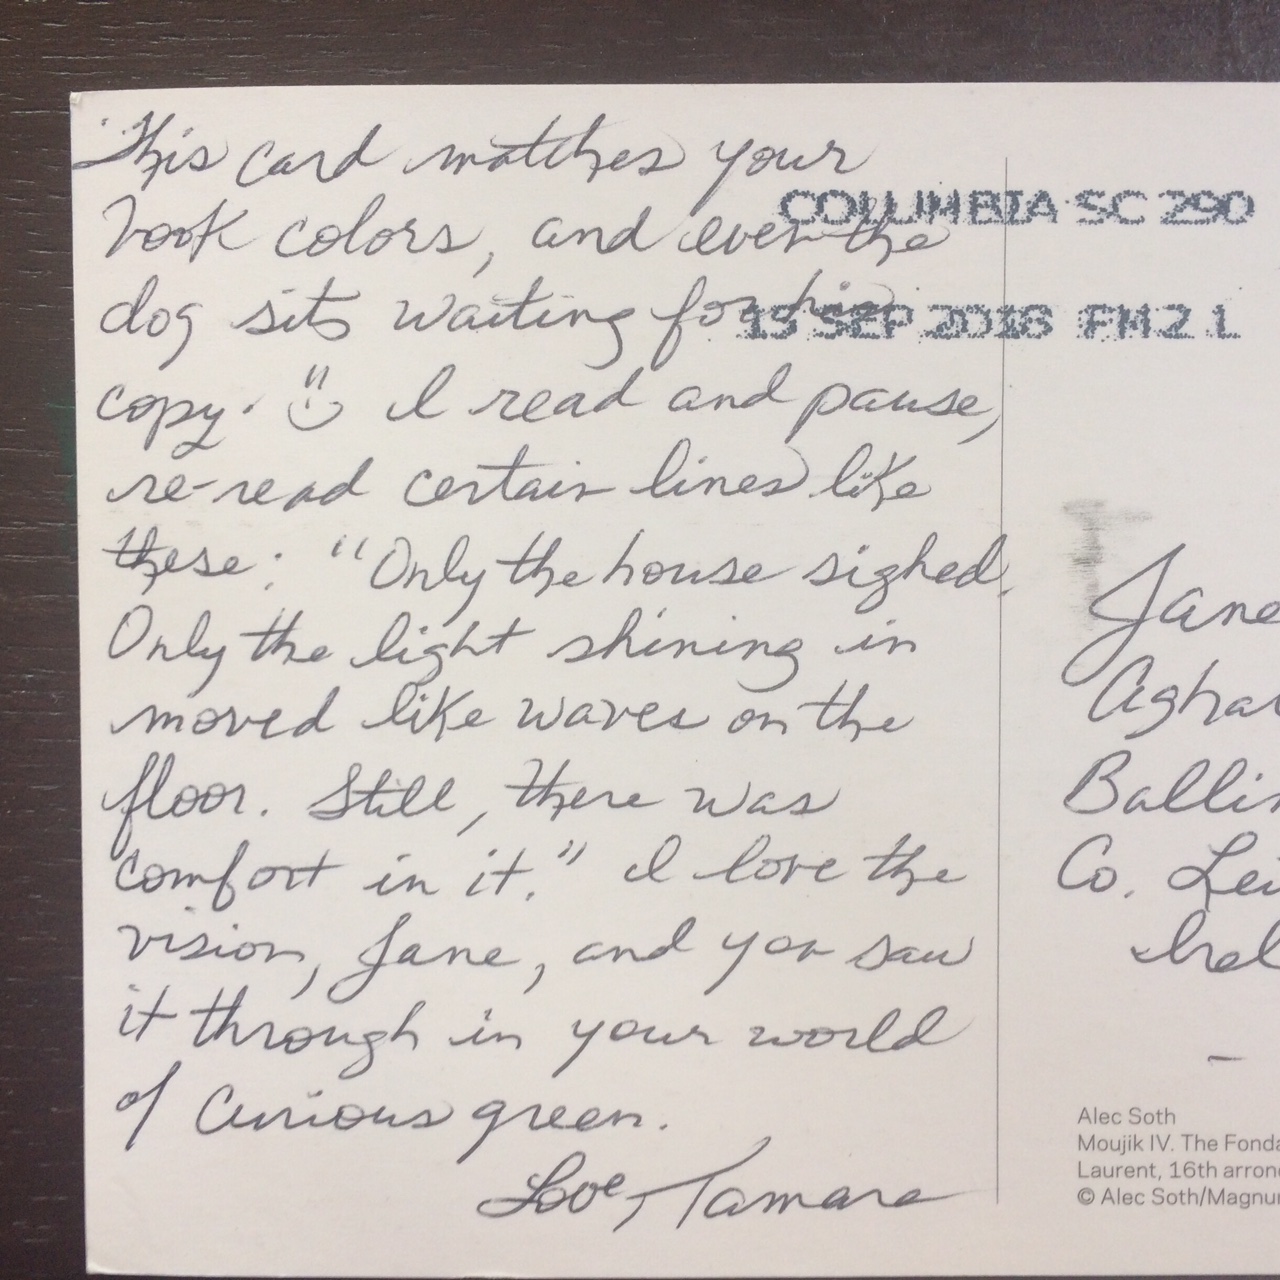 This card matches your
book colors, and even the
dog sits waiting for his
copy. I read and pause,
re-read certain lines like
these: "Only the house sighed.
Only the light shining in
moved like waves on the
floor. Still, there was
comfort in it." I love the
vision, Jane, and you saw
it through in your world
of curious green.
Love, Tamara
COLUMBIA SC 290
15 SEP 2016 PM 2 L
Jane
Aghar
Ballin
Co. Lei
Irel
Alec Soth
Moujik IV. The Fonda
Laurent, 16th arrond
© Alec Soth/Magnum